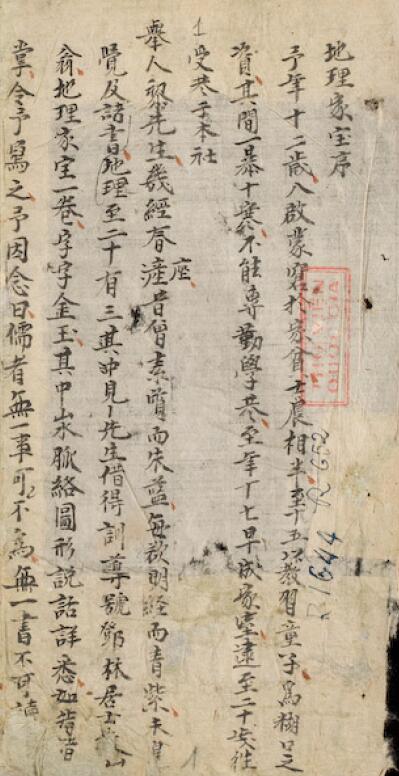 地理家宝序
予年十二歳入啟蒙窘於家貧士農相半至十五以教習童子爲糊口之
資其間一暴十寒不能專勤學業至年十七早成家室遠至二十
受業于本社
舉人黎先生幾經春座昔曾素質而朱藍每欲明經而青紫
覺及諸書地理至二十有三其中見先生借得訓導號鄧林居士
翁地理家宝一卷字字金玉其中山水脈絡圖形說話詳悉如
掌令予寫之予因念曰儒者無一事可不爲無一書不可讀
R 1644